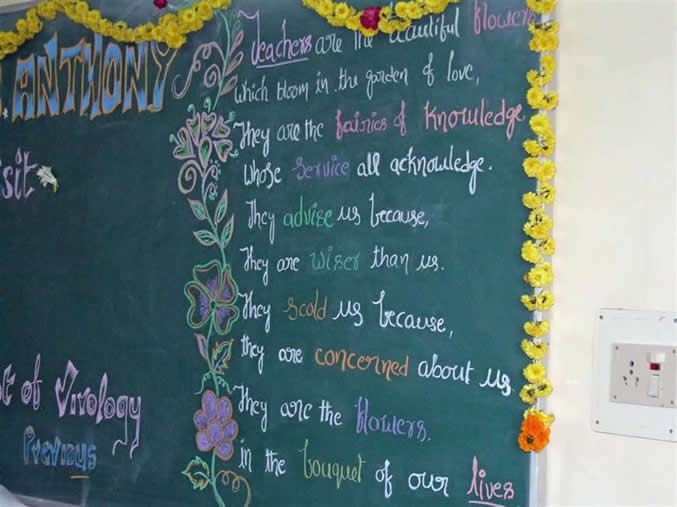 . ANTHONY
sit
t of Virology
Previous
Teachers are the beautiful flowers
which bloom in the garden of love,
They are the fairies of Knowledge
Whose service all acknowledge.
They advise us because,
They are wiser than us.
They scold us because,
they are concerned about us.
They are the flowers.
in the bouquet of our lives